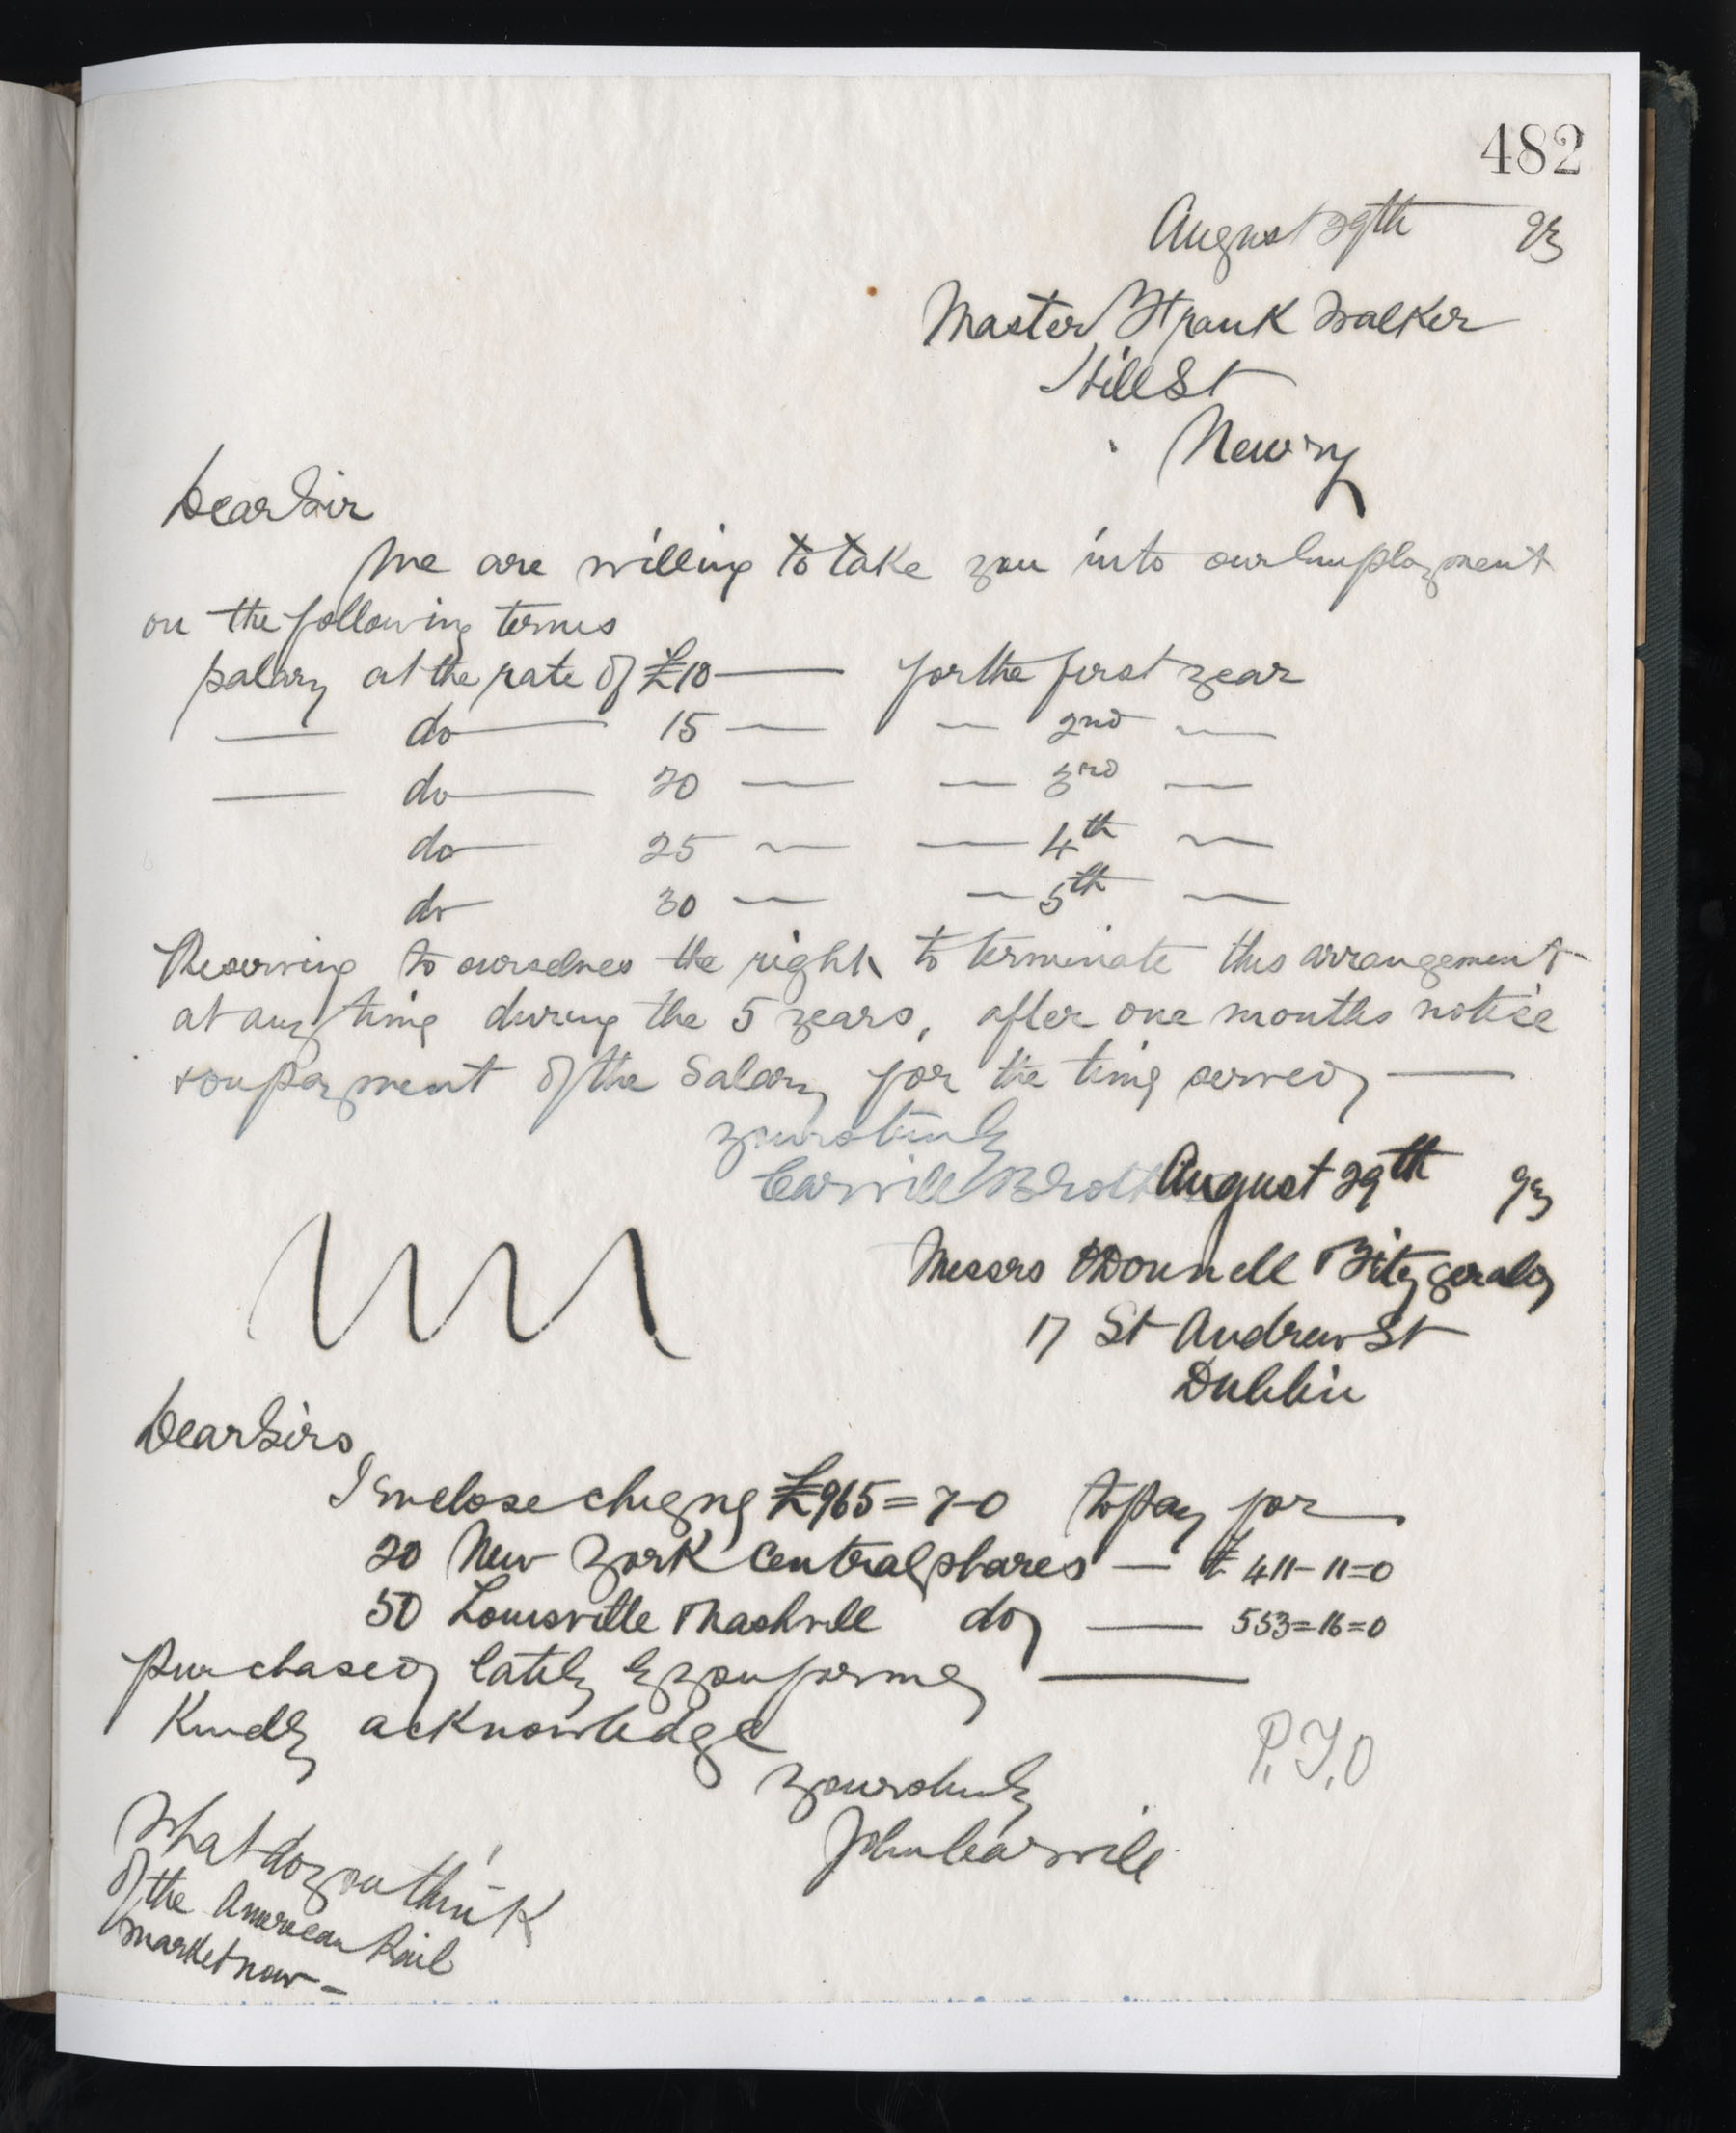 482
August 29th 93
Master Frank Walker
Hill St
Newry
Dear Sir
We are willing to take you into our Employment
on the following terms
Salary at the rate of £10 — for the first year
— do — 15 — — 2nd —
— do — 20 — — 3rd —
do — 25 — — 4th —
do 30 — — 5th —
Reserving to ourselves the right to terminate this arrangement
at any time during the 5 years, after one months notice
& on payment of the Salary for the time served —
yours truly
Carvill Brothers
August 29th 93
Messrs O'Donnell & Fitzgerald
17 St Andrew St
Dublin
Dear Sirs
I Enclose cheque £965=7-0 to pay for
20 New York Central shares — £411-11=0
50 Louisville & Nashvill do — 553=16=0
purchased lately by you for me —
Kindly acknowledge
yours truly
John Carvill
P.T.O
What do you think
of the American Rail
market now -